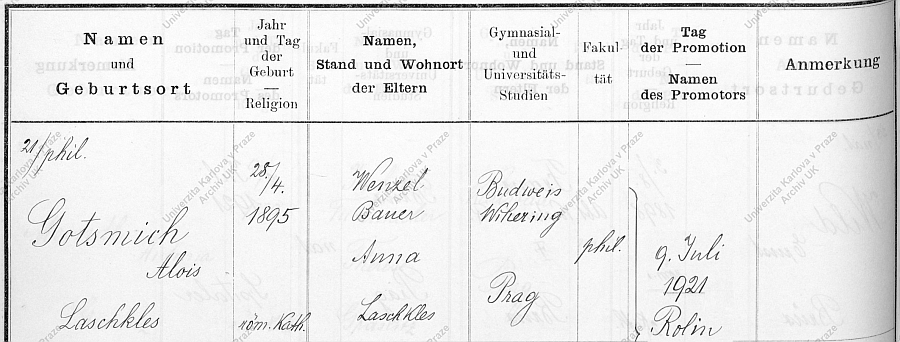 Namen
und
Geburtsort
Jahr
und Tag
der
Geburt
Religion
Namen,
Stand und Wohnort
der Eltern
Gymnasial-
und
Universitäts-
Studien
Fakul-
tät
Tag
der Promotion
Namen
des Promotors
Anmerkung
21/phil.
Gotsmich
Alois
Laschkles
28./4.
1895
röm. Kath.
Wenzel
Bauer
Anna
Laschkles
Budweis
Wihering
Prag
phil.
9. Juli
1921
Rolin
Univerzita Karlova v Praze
Archiv UK